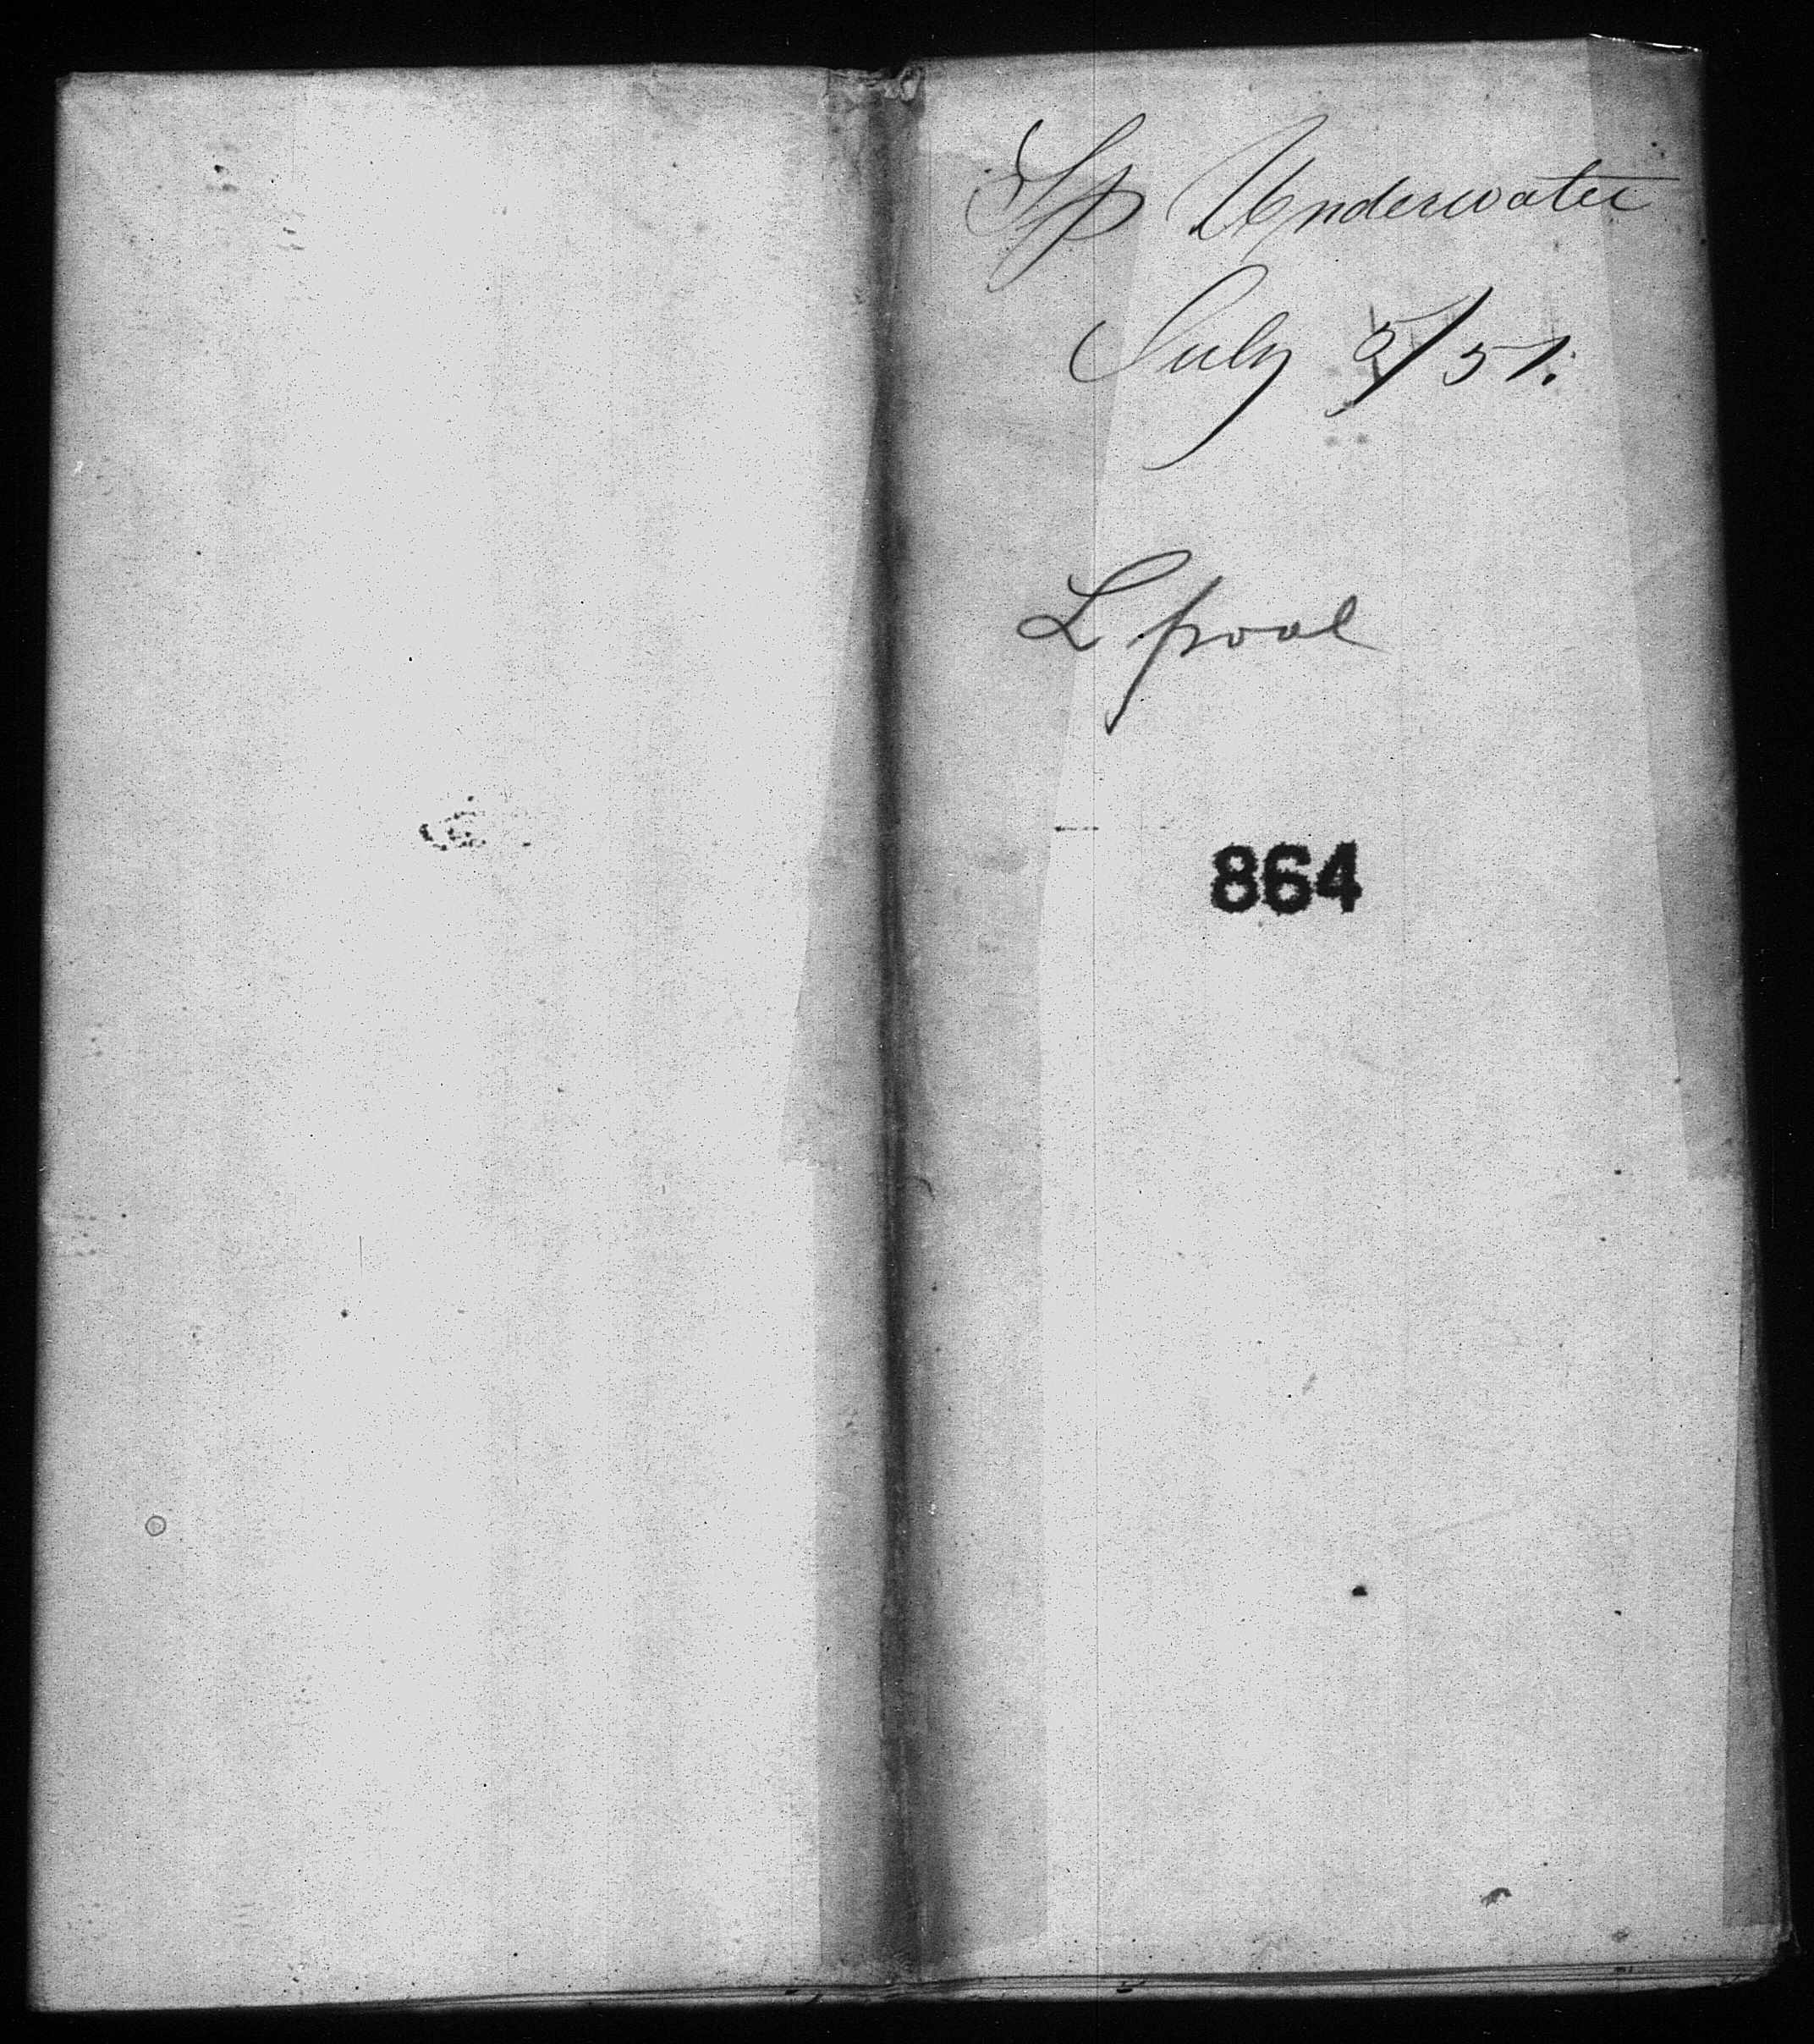 Sp Underwater
July 5/51.
L pool
864